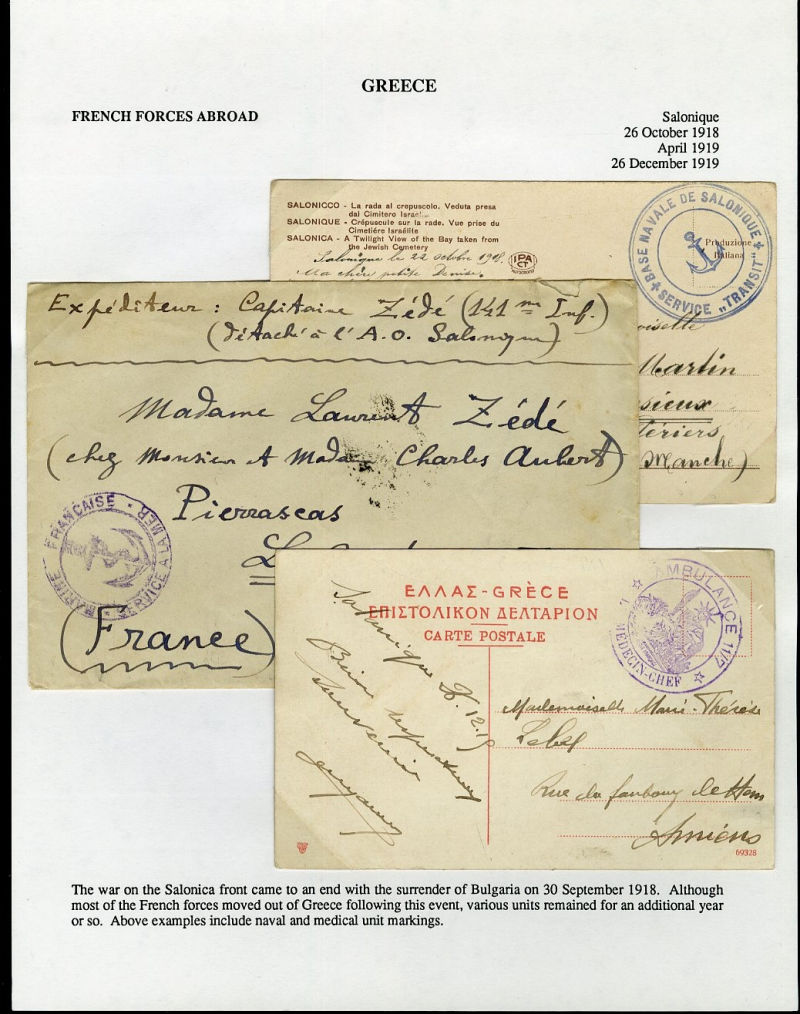 GREECE
FRENCH FORCES ABROAD
Salonique
26 October 1918
April 1919
26 December 1919
SALONICCO - La rada al crepuscolo. Veduta presa
dal Cimitero Israel
SALONIQUE - Crépuscule sur la rade. Vue prise du
Cimetiére Israëlite
SALONICA - A Twilight View of the Bay taken from
the Jewish Cemetery
Salonique le 22 octobre 1918.
Ma chère petite Denise.
IPA
CT
BASE NAVALE DE SALONIQUE
SERVICE „TRANSIT"
Produzione
Italiana
oiselle
Martin
sieux
tériers
(Manche)
Expéditeur : Capitaine Zédé (141me Inf.)
(détaché à l'A.O. Salonique)
Madame Laurent Zédé
(chez Monsieur et Madame Charles Aubert)
Pierrascas
(France)
MARINE FRANÇAISE
SERVICE A LA MER
ΕΛΛΑΣ - GRÈCE
ΕΠΙΣΤΟΛΙΚΟΝ ΔΕΛΤΑΡΙΟΝ
CARTE POSTALE
AMBULANCE 11/7
L MEDECIN-CHEF
Salonique 26.12.19
Bien
Souvenir
Mademoiselle Marie-Thérèse
Lebel
Rue du faubourg de Ham
Amiens
69328
The war on the Salonica front came to an end with the surrender of Bulgaria on 30 September 1918. Although
most of the French forces moved out of Greece following this event, various units remained for an additional year
or so. Above examples include naval and medical unit markings.